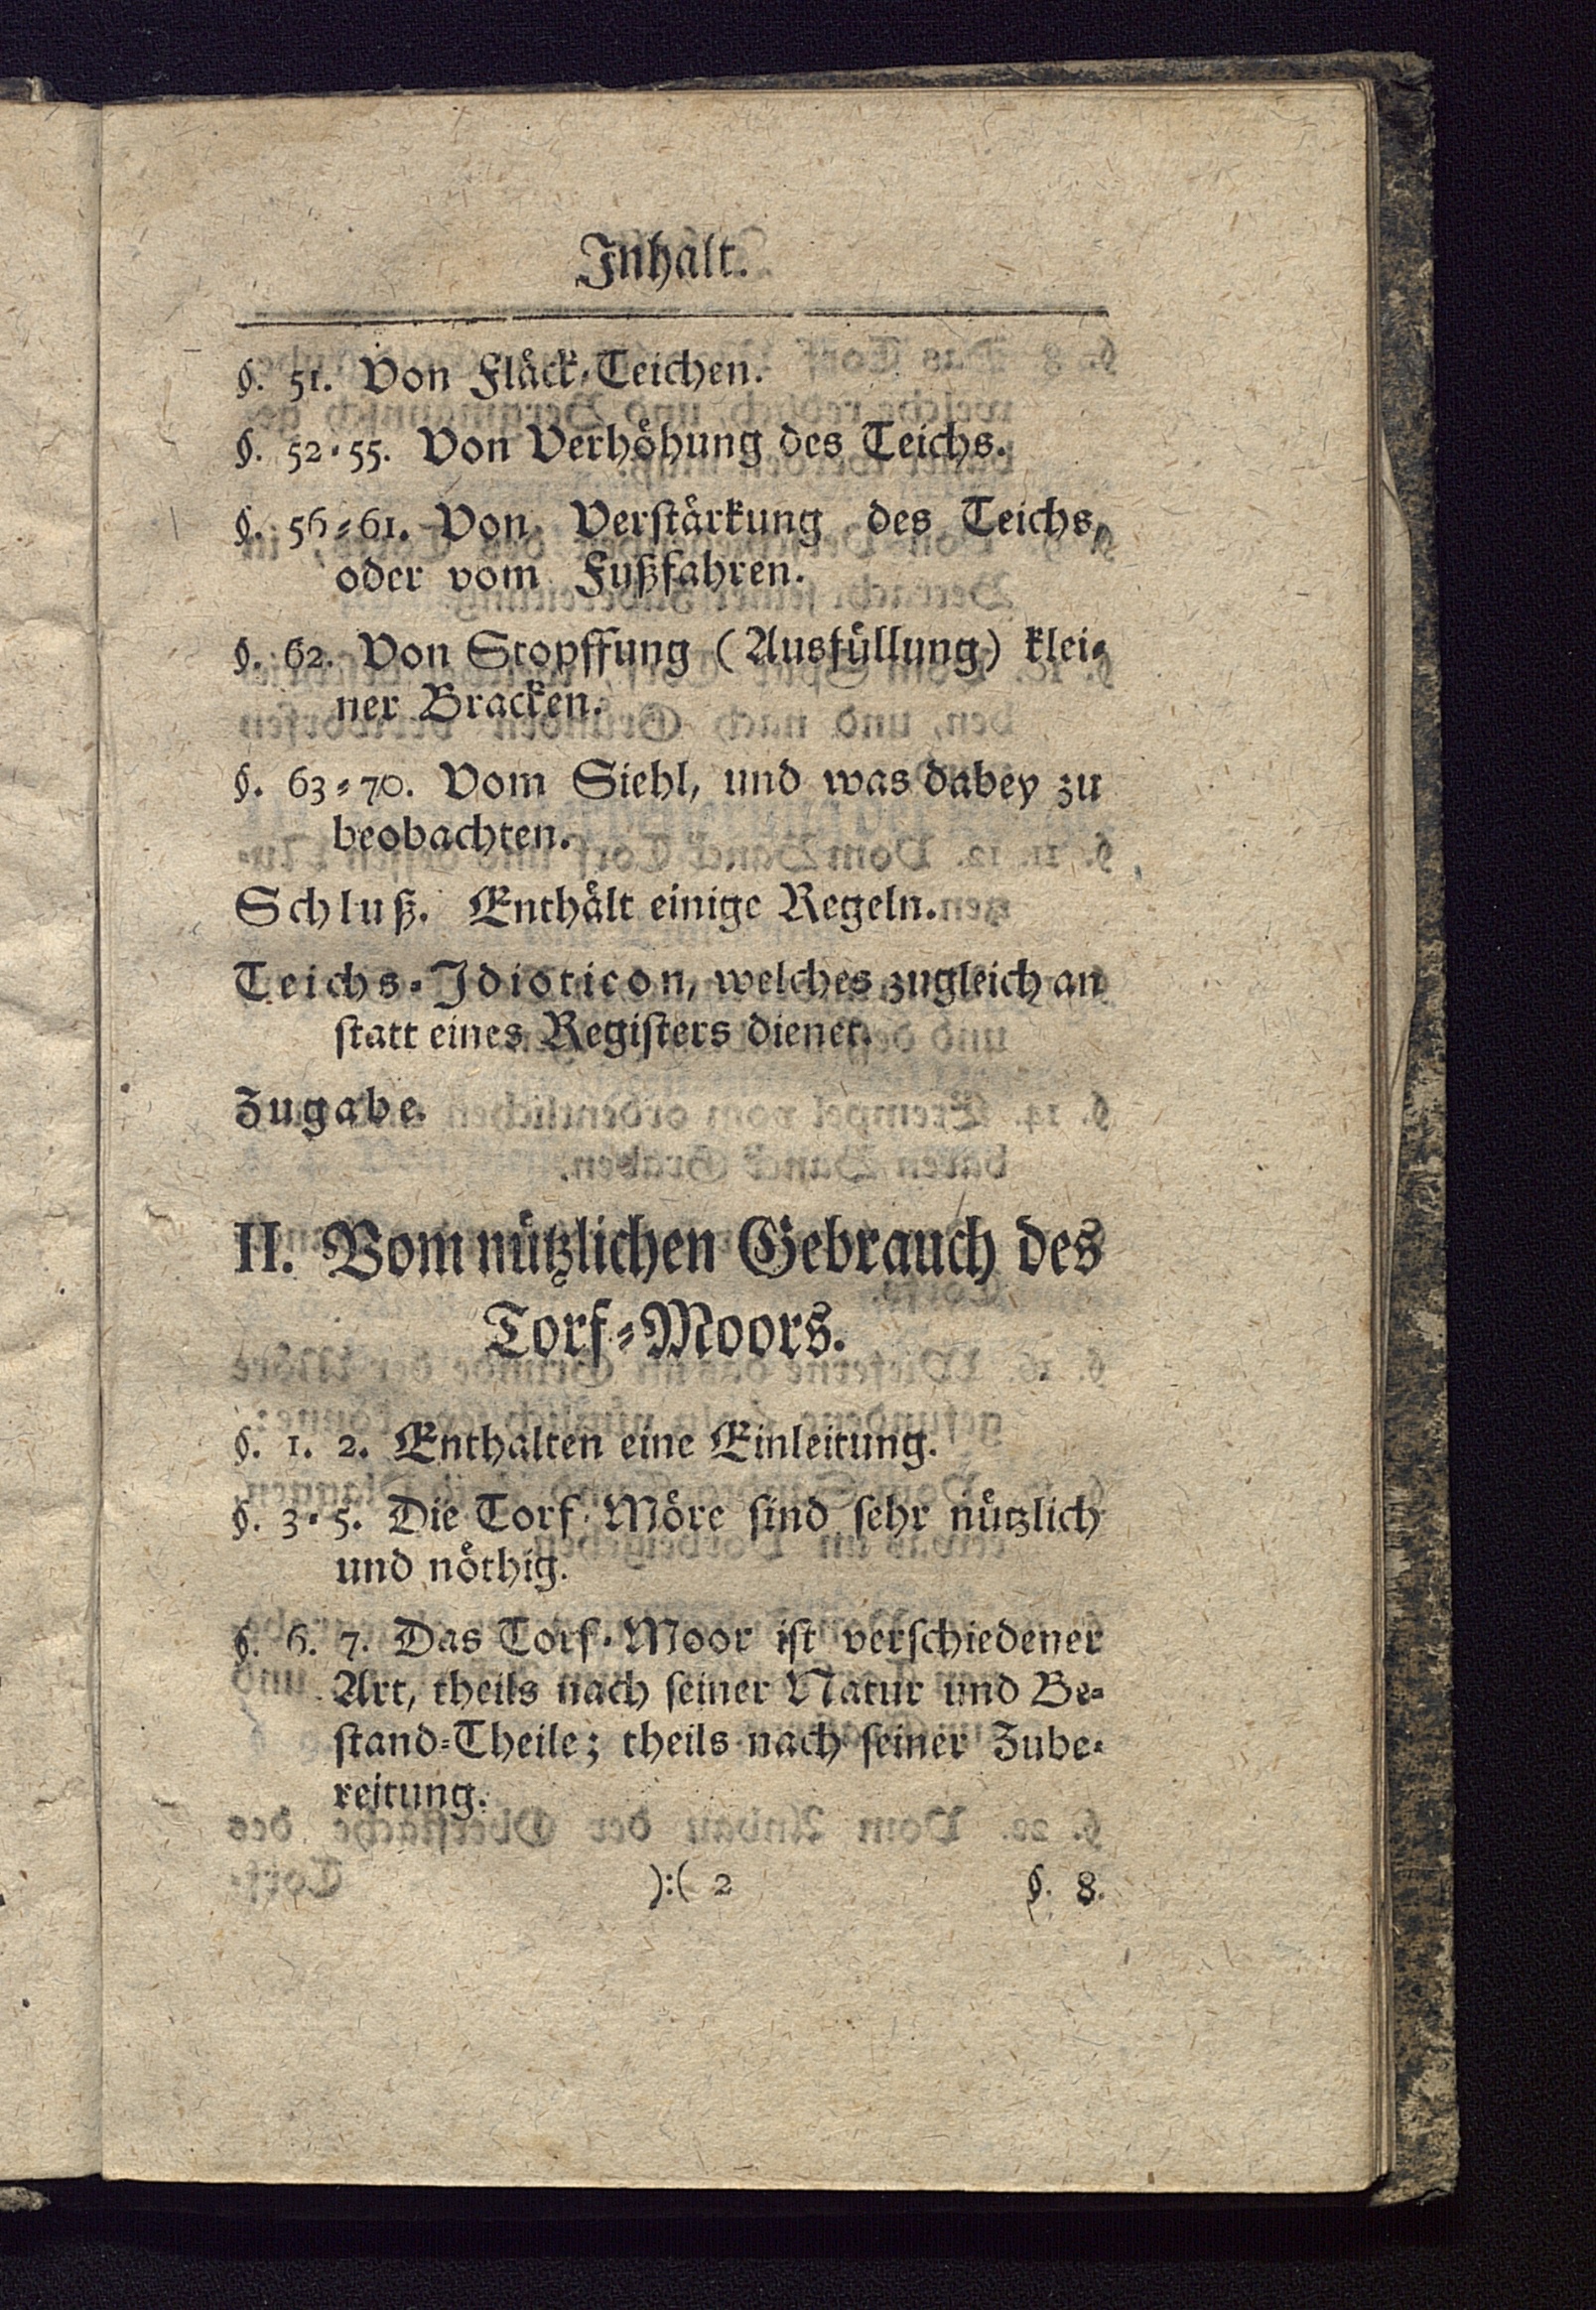 Inhalt.
§. 51. Von Fläck-Teichen.
§. 52-55. Von Verhöhung des Teichs.
§. 56-61. Von Verstärkung des Teichs,
oder vom Fußfahren.
§. 62. Von Stopffung (Ausfüllung) klei-
ner Bracken.
§. 63-70. Vom Siehl, und was dabey zu
beobachten.
Schluß. Enthält einige Regeln.
Teichs-Idioticon, welches zugleich an
statt eines Registers dienet.
Zugabe.
II. Vom nützlichen Gebrauch des
Torf-Moors.
§. 1. 2. Enthalten eine Einleitung.
§. 3-5. Die Torf-Möre sind sehr nützlich
und nöthig.
§. 6. 7. Das Torf-Moor ist verschiedener
Art, theils nach seiner Natur und Be-
stand-Theile; theils nach seiner Zube-
reitung.
):( 2 §. 8.